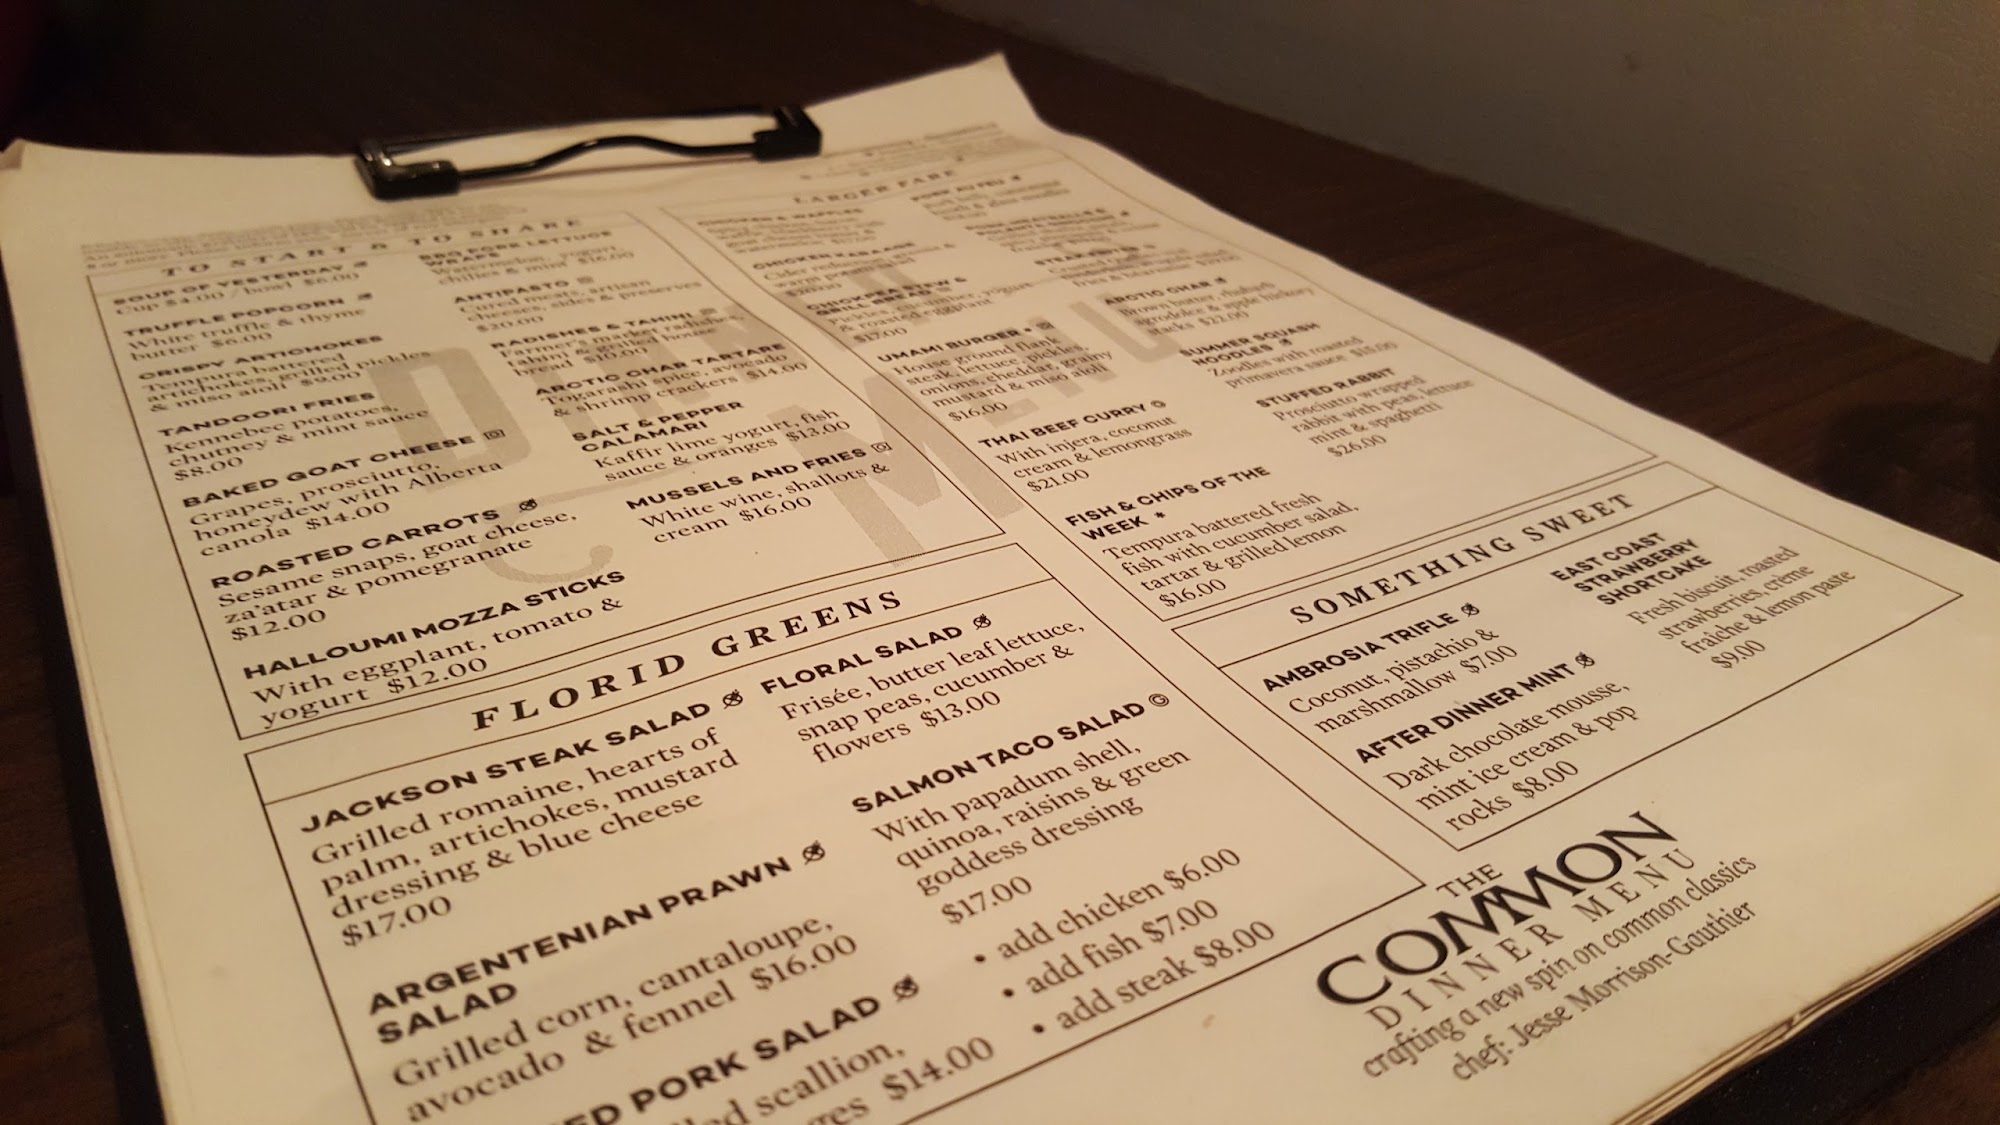 TO START & TO SHARE
SOUP OF YESTERDAY
Cup $4.00 / bowl $6.00
TRUFFLE POPCORN
White truffle & thyme
butter $6.00
CRISPY ARTICHOKES
Tempura battered
artichokes, grilled pickles
& miso aioli $9.00
TANDOORI FRIES
Kennebec potatoes,
chutney & mint sauce
$8.00
BAKED GOAT CHEESE
Grapes, prosciutto,
honeydew with Alberta
canola $14.00
ROASTED CARROTS
Sesame snaps, goat cheese,
za'atar & pomegranate
$12.00
HALLOUMI MOZZA STICKS
With eggplant, tomato &
yogurt $12.00
BBQ PORK LETTUCE
WRAPS
Watermelon, yogurt
chilies & mint $16.00
ANTIPASTO
Cured meats, artisan
cheeses, sides & preserves
$20.00
RADISHES & TAHINI
Farmer's market radishes,
tahini & grilled house
bread $10.00
ARCTIC CHAR TARTARE
Togarashi spice, avocado
& shrimp crackers $14.00
SALT & PEPPER
CALAMARI
Kaffir lime yogurt, fish
sauce & oranges $13.00
MUSSELS AND FRIES
White wine, shallots &
cream $16.00
FLORID GREENS
JACKSON STEAK SALAD
Grilled romaine, hearts of
palm, artichokes, mustard
dressing & blue cheese
$17.00
ARGENTENIAN PRAWN
SALAD
Grilled corn, cantaloupe,
avocado & fennel $16.00
ED PORK SALAD
led scallion,
ges $14.00
FLORAL SALAD
Frisée, butter leaf lettuce,
snap peas, cucumber &
flowers $13.00
SALMON TACO SALAD
With papadum shell,
quinoa, raisins & green
goddess dressing
$17.00
• add chicken $6.00
• add fish $7.00
• add steak $8.00
LARGER FARE
CHICKEN & WAFFLES
CHICKEN KARAAGE
CHICKPEA STEW &
GRILL BREAD
Pickles, cucumber, yogurt
& roasted eggplant
$17.00
UMAMI BURGER
House ground flank
steak, lettuce, pickles,
onions, cheddar, grainy
mustard & miso aioli
$16.00
THAI BEEF CURRY
With injera, coconut
cream & lemongrass
$21.00
FISH & CHIPS OF THE
WEEK *
Tempura battered fresh
fish with cucumber salad,
tartar & grilled lemon
$16.00
ARCTIC CHAR
Brown butter, rhubarb
agrodolce & apple hickory
stacks $22.00
SUMMER SQUASH
NOODLES
Zoodles with roasted
primavera sauce $15.00
STUFFED RABBIT
Prosciutto wrapped
rabbit with peas, lettuce
mint & spaghetti
$26.00
SOMETHING SWEET
AMBROSIA TRIFLE
Coconut, pistachio &
marshmallow $7.00
AFTER DINNER MINT
Dark chocolate mousse,
mint ice cream & pop
rocks $8.00
EAST COAST
STRAWBERRY
SHORTCAKE
Fresh biscuit, roasted
strawberries, crème
fraiche & lemon paste
$9.00
THE
COMMON
DINNER MENU
crafting a new spin on common classics
chef: Jesse Morrison-Gauthier